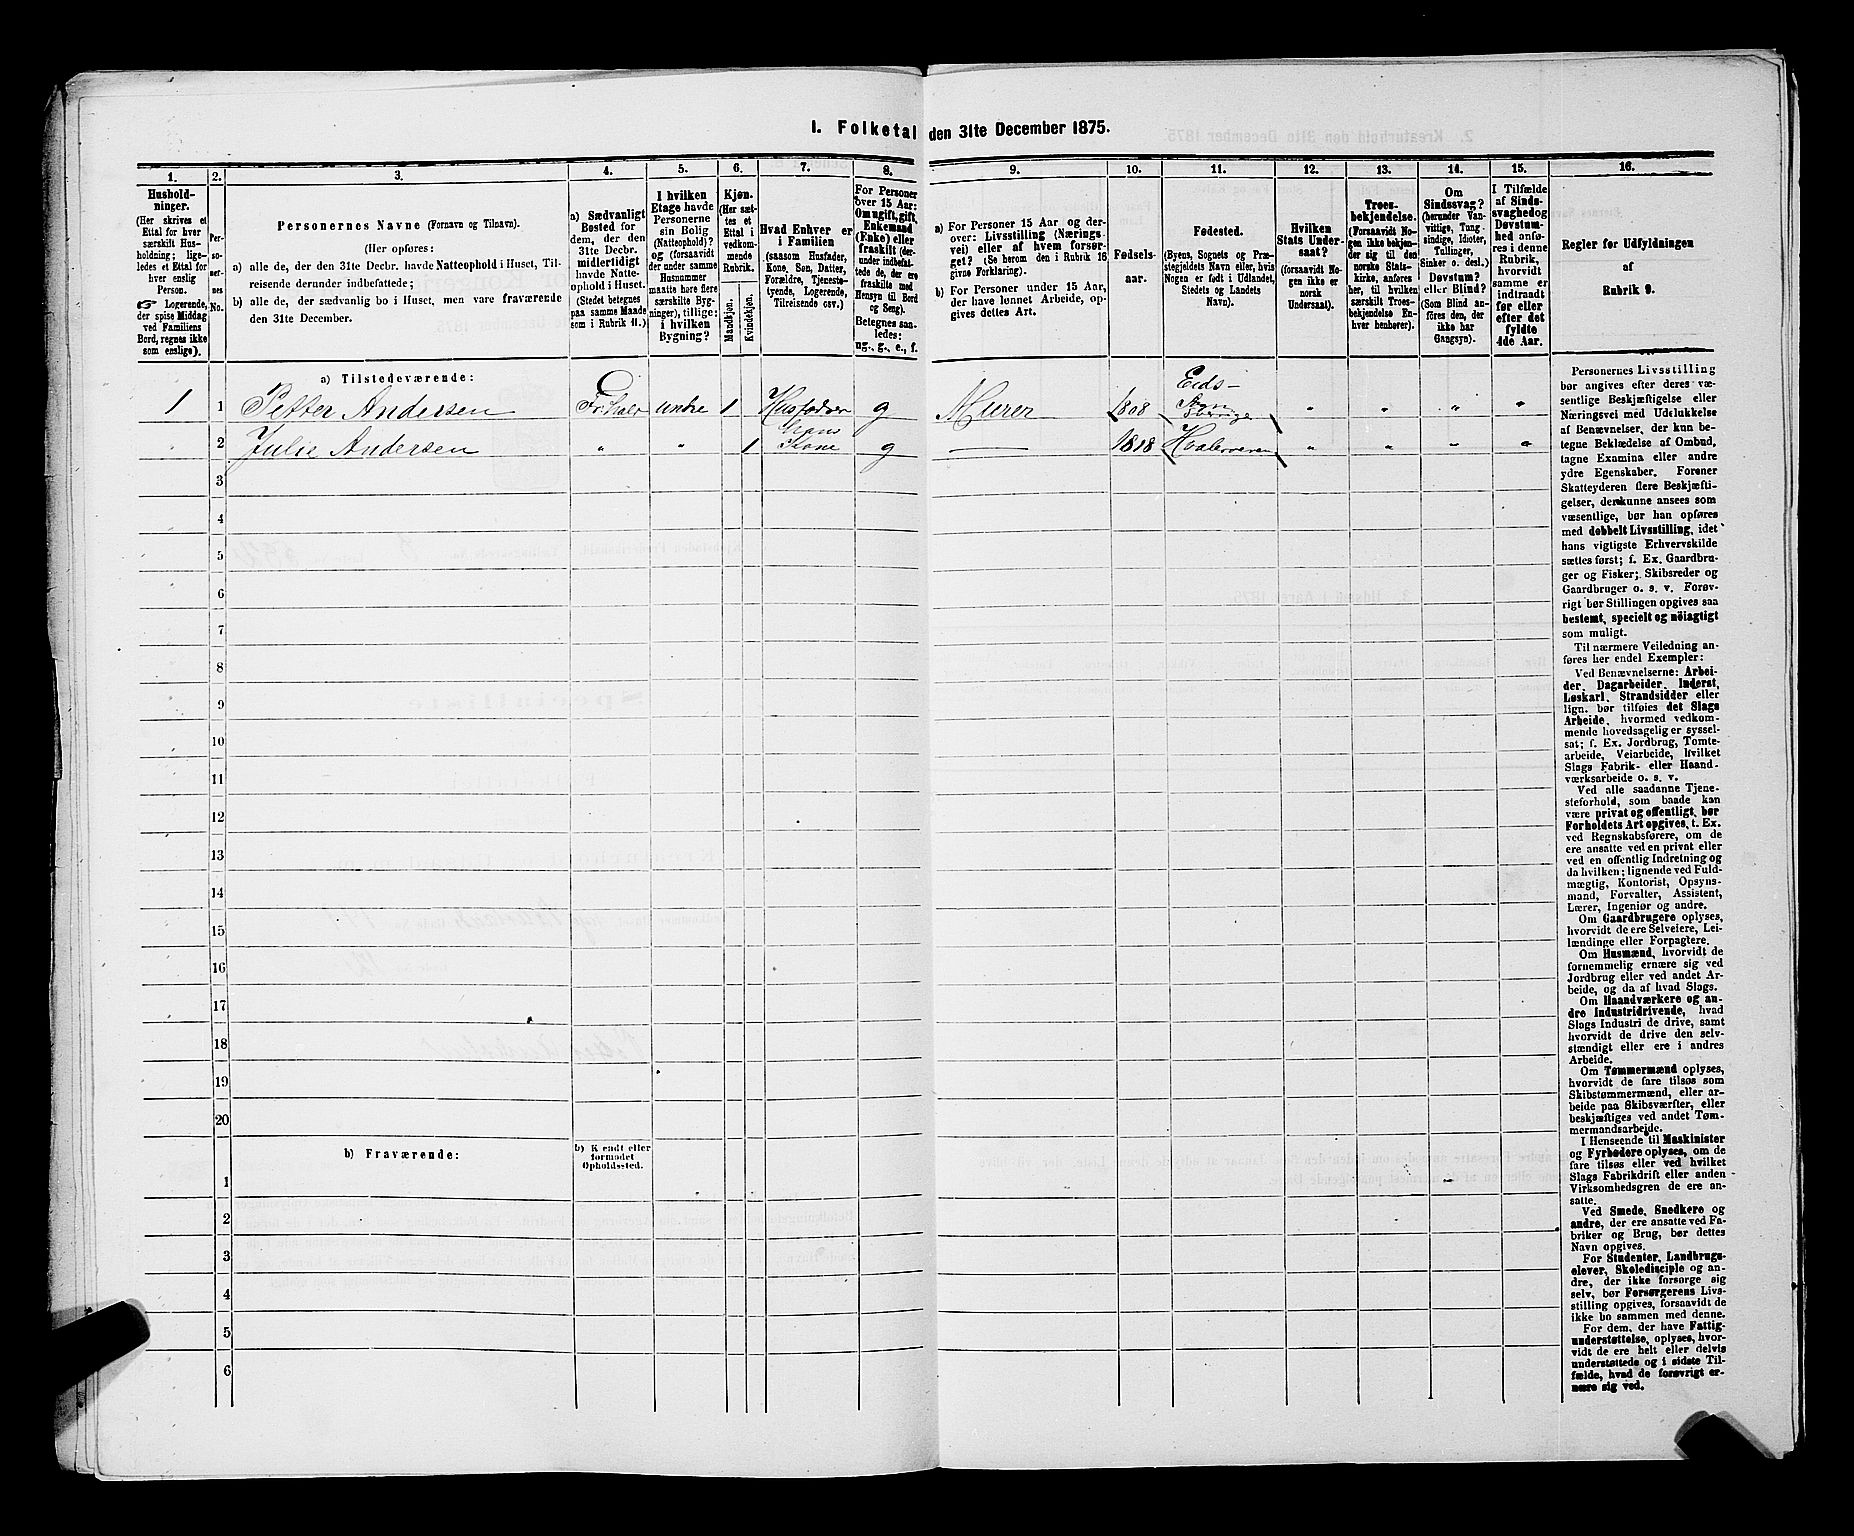 I. Folketal den 31te December 1875.
1. 2. 3. 4. 5. 6. 7. 8. 9. 10. 11. 12. 13. 14. 15. 16.
Hushold-
ninger.
(Her skrives et
Ettal for hver
særskilt Hus-
holdning; lige-
ledes et Ettal for
hver enslig
Person.
☞ Logerende,
der spise Middag
ved Familiens
Bord, regnes ikke
som enslige).
Per-
so-
ner-
nes
No.
Personernes Navne (Fornavn og Tilnavn).
(Her opføres:
a) alle de, der den 31te Decbr. havde Natteophold i Huset, Til-
reisende derunder indbefattede;
b) alle de, der sædvanlig bo i Huset, men vare fraværende
den 31te December.
a) Sædvanligt
Bosted for
dem, der den
31te Decbr.
midlertidigt
havde Natte-
ophold i Huset.
(Stedet betegnes
paa samme Maade
som i Rubrik 11.)
I hvilken
Etage havde
Personerne
sin Bolig
(Natteophold)?
og (forsaavidt
der under samme
Husnummer
maatte høre flere
særskilte Byg-
ninger), tillige:
i hvilken
Bygning?
Kjøn.
(Her sæt-
tes et
Ettal i
vedkom-
mende
Rubrik.
Mandkjøn.
Kvindekjøn.
Hvad Enhver er
i Familien
(saasom Husfader,
Kone, Søn, Datter,
Forældre, Tjeneste-
tyende, Logerende,
Tilreisende osv.)
For Personer
over 15 Aar:
Om ugift, gift,
Enkemand
(Enke) eller
fraskilt (der-
under indbefat-
tede de, der ere
fraskilte med
Hensyn til Bord
og Seng).
Betegnes saa-
ledes:
ug., g., e., f.
a) For Personer 15 Aar og der-
over: Livsstilling (Nærings-
vei) eller af hvem forsør-
get? (Se herom den i Rubrik 16
givne Forklaring).
b) For Personer under 15 Aar,
der have lønnet Arbeide, op-
gives dettes Art.
Fødsels-
aar.
Fødested.
(Byens, Sognets og Præ-
stegjeldets Navn eller, hvis
Nogen er født i Udlandet,
Stedets og Landets
Navn).
Hvilken
Stats Under-
saat?
(forsaavidt No-
gen ikke er
norsk
Undersaat).
Troes-
bekjendelse.
(Forsaavidt No-
gen ikke bekjen-
der sig til den
norske Stats-
kirke, anføres
her, til hvilken
særskilt Troes-
bekjendelse En-
hver henhører).
Om
Sindssvag?
(herunder Van-
vittige, Tung-
sindige, Idioter,
Tullinger,
Sinker o. desl.)
Døvstum?
eller Blind?
(Som Blind an-
føres den, der
ikke har
Gangsyn).
I Tilfælde
af Sinds-
svaghed og
Døvstum-
hed anfø-
res i denne
Rubrik,
hvorvidt
samme er
indtraadt
før eller
efter det
fyldte
4de Aar.
Regler for Udfyldningen
af
Rubrik 9.
a) Tilstedeværende:
1 1 Petter Andersen Fr.hald undre 1 Husfader g Murer 1808 Eids- " " " "
" 2 Julie Andersen " " 1 Hans Kone g — 1818 " " " "
3
4
5
6
7
8
9
10
11
12
13
14
15
16
17
18
19
20
b) Fraværende:
b) Kjendt eller
formodet
Opholdssted.
1
2
3
4
5
6
Personernes Livsstilling
bør angives efter deres væ-
sentlige Beskjæftigelse eller
Næringsvei med Udelukkelse
af Benævnelser, der kun be-
tegne Beklædelse af Ombud,
tagne Examina eller andre
ydre Egenskaber. Forener
Skatteyderen flere Beskjæfti-
gelser, der kunne ansees som
væsentlige, bør han opføres
med dobbelt Livsstilling, idet
hans vigtigste Erhvervskilde
sættes først; f. Ex. Gaardbru-
ger og Fisker; Skibsreder og
Gaardbruger o. s. v. Forøv-
rigt bør Stillingen opgives saa
bestemt, specielt og nöiagtigt
som muligt.
Til nærmere Veiledning an-
føres her endel Exempler:
Ved Benævnelserne: Arbei-
der, Dagarbeider, Inderst,
Løskarl, Strandsidder eller
lign. bør tilføies det Slags
Arbeide, hvormed vedkom-
mende hovedsagelig er syssel-
sat; f. Ex. Jordbrug, Tomte-
arbeide, Veiarbeide, hvilket
Slags Fabrik- eller Haand-
værksarbeide o. s. v.
Ved alle saadanne Tjene-
steforhold, som baade kan
være privat og offentligt, bør
Forholdets Art opgives, t. Ex.
ved Regnskabsførere, om de
ere ansatte ved en privat eller
ved en offentlig Indretning og
da hvilken; lignende ved Fuld-
mægtig, Kontorist, Opsyns-
mand, Forvalter, Assistent,
Lærer, Ingeniør og andre.
Om Gaardbrugere oplyses,
hvorvidt de ere Selveiere, Lei-
lændinge eller Forpagtere.
Om Husmænd, hvorvidt de
fornemmelig ernære sig ved
Jordbrug eller ved andet Ar-
beide, og da af hvad Slags.
Om Haandværkere og an-
dre Industridrivende, hvad
Slags Industri de drive, samt
hvorvidt de drive den selv-
stændigt eller ere i andres
Arbeide.
Om Tømmermænd oplyses,
hvorvidt de fare tilsøs som
Skibstømmermænd, eller ar-
beide paa Skibsværfter, eller
beskjæftiges ved andet Tøm-
mermandsarbeide.
I Henseende til Maskinister
og Fyrbødere oplyses, om de
fare tilsøs eller ved hvilket
Slags Fabrikdrift eller anden
Virksomhedsgren de ere an-
satte.
Ved Smede, Snedkere og
andre, der ere ansatte ved Fa-
briker og Brug, bør dettes
Navn opgives.
For Studenter, Landbrugs-
elever, Skoledisciple og an-
dre, der ikke forsørge sig
selv, bør Forsørgerens Livs-
stilling opgives, forsaavidt de
ikke bo sammen med denne.
For dem, der have Fattig-
understøttelse, oplyses, hvor-
vidt de ere helt eller delvis
understøttede og i sidste Til-
fælde, hvad de forøvrigt er-
nære sig ved.